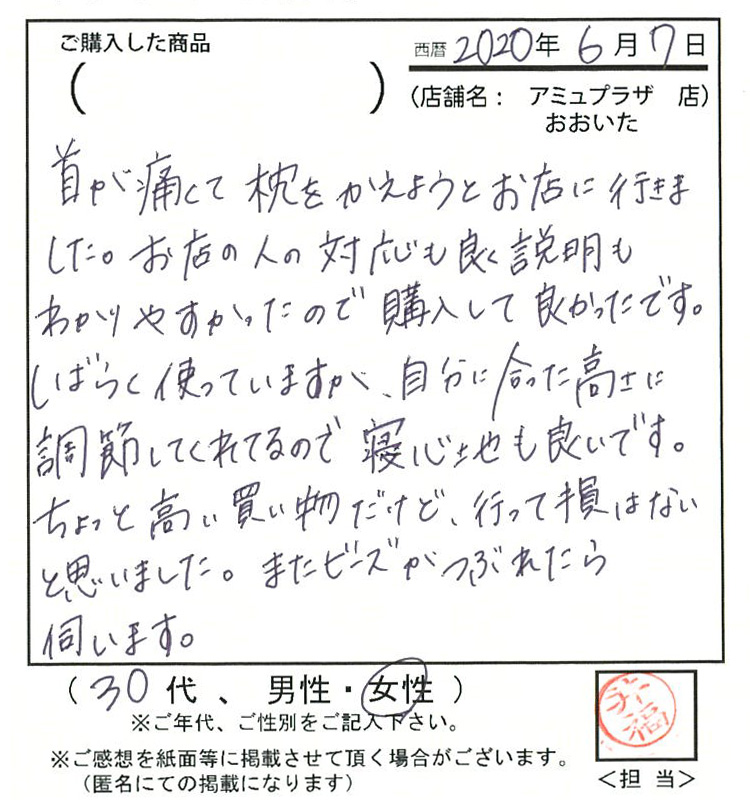 ご購入した商品
( )
西暦 2020年 6月 7日
(店舗名: アミュプラザ 店)
おおいた
首が痛くて枕をかえようとお店に行きま
した。お店の人の対応も良く説明も
わかりやすかったので購入して良かったです。
しばらく使っていますが、自分に合った高さに
調節してくれてるので寝心地も良いです。
ちょっと高い買い物だけど、行って損はない
と思いました。またビーズがつぶれたら
伺います。
( 30 代 、 男性・女性 )
※ご年代、ご性別をご記入下さい。
※ご感想を紙面等に掲載させて頂く場合がございます。
(匿名にての掲載になります)
<担 当>